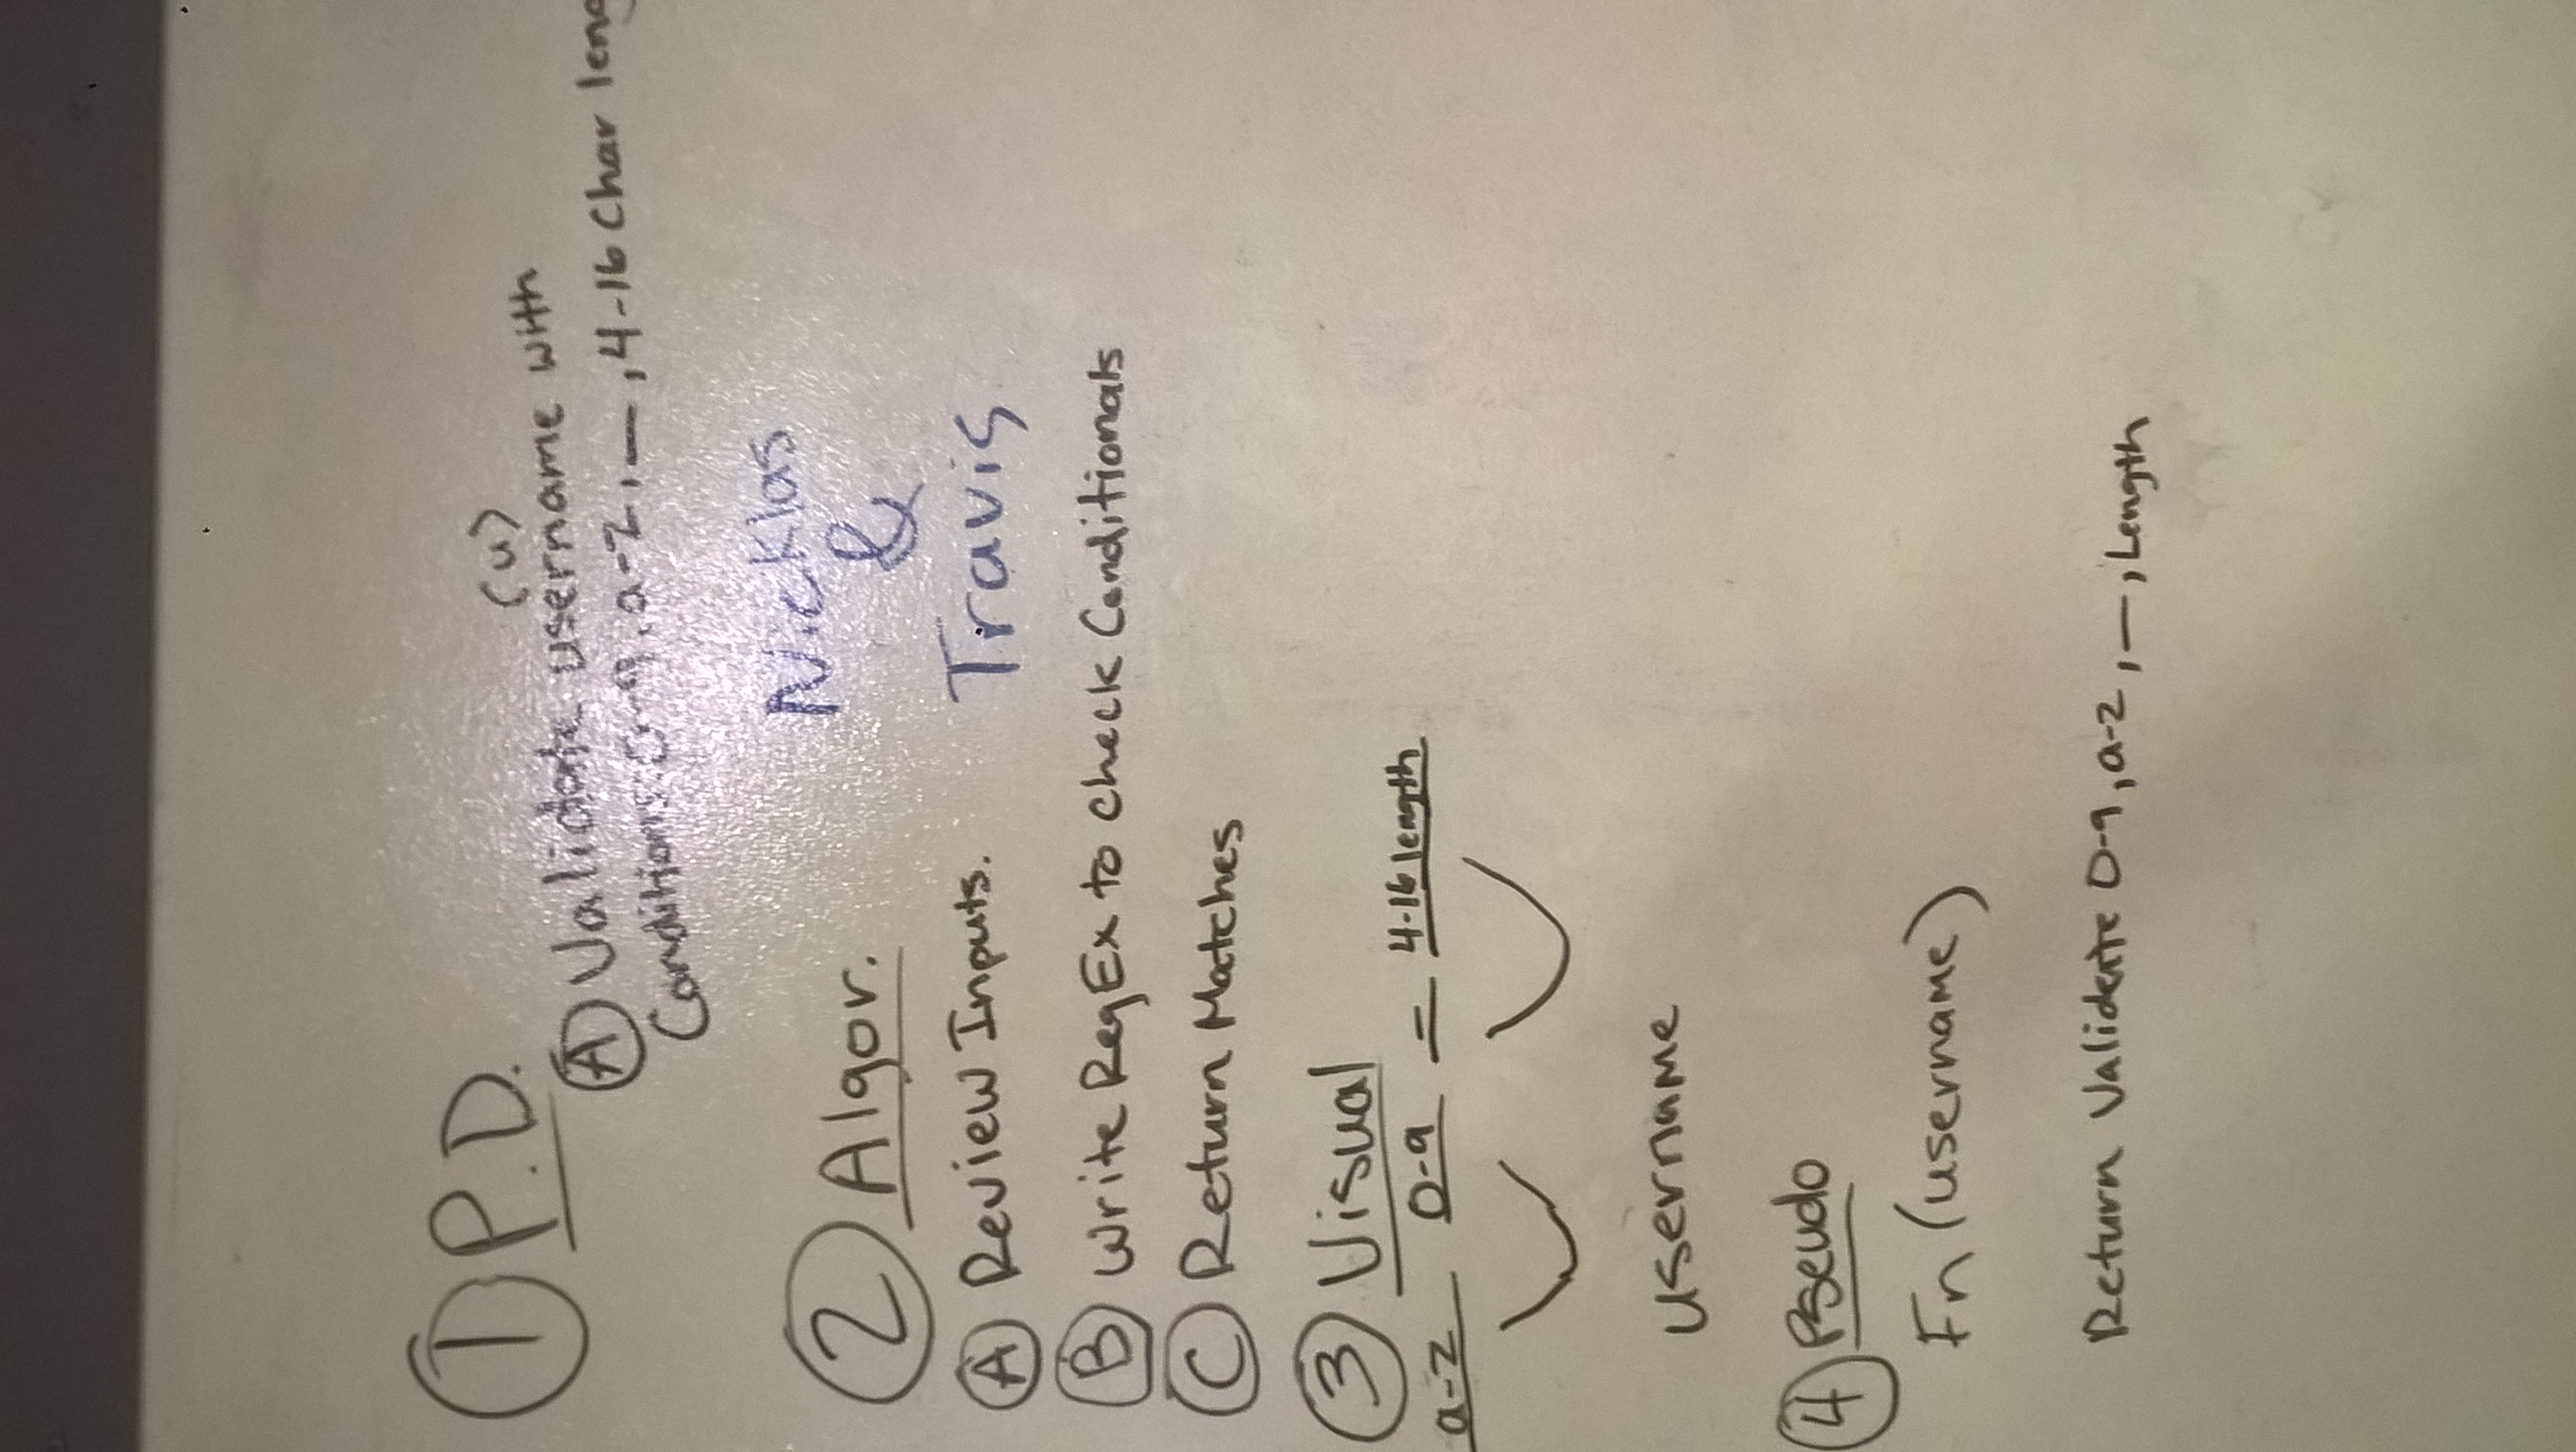 ① P.D.
(u)
Ⓐ Validate username with
Conditions: 0-9, a-z, _, 4-16 Char leng
② Algor.
Nicklas
&
Travis
Ⓐ Review Inputs.
Ⓑ Write RegEx to check Conditionals
Ⓒ Return Matches
③ Visual
a-z 0-9 = 4-16 length
username
④ Pseudo
Fn (username)
Return Validate 0-9, a-z, _, Length